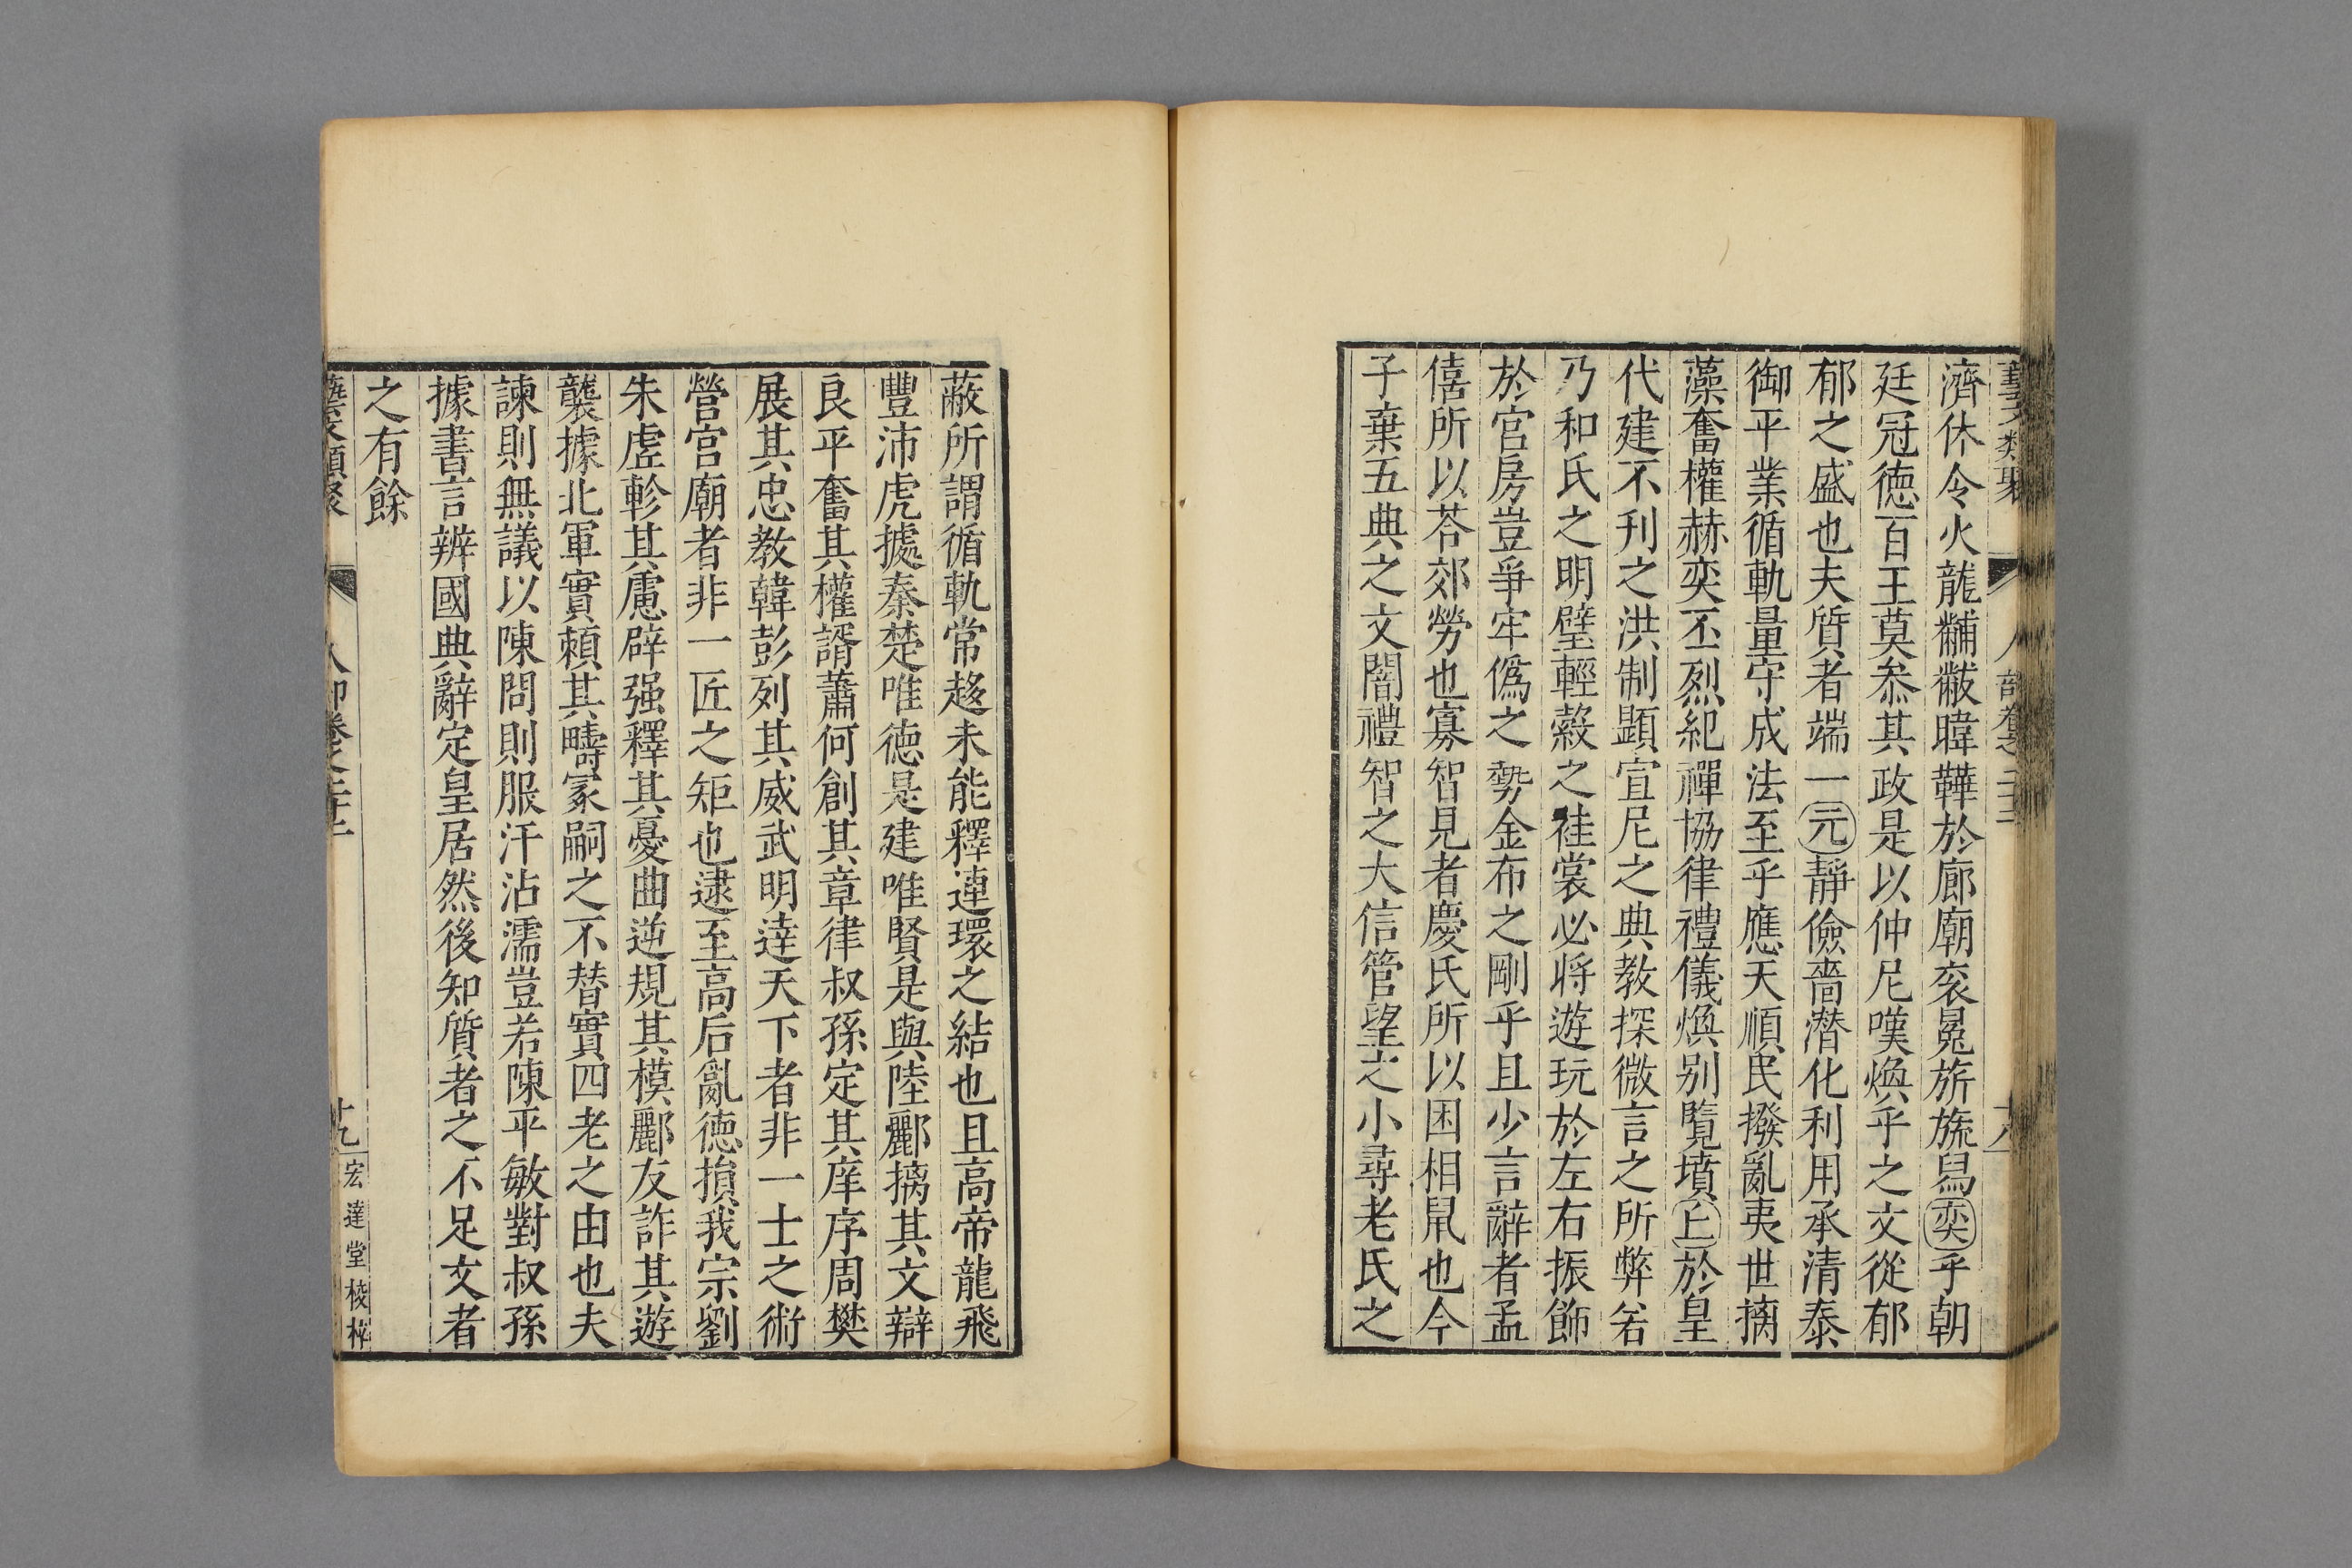 藝文類聚 人部卷之二十二 十八
濟休令火龍黼黻暐韡於廊廟衮冕旂旒舄奕乎朝
廷冠德百王莫叅其政是以仲尼嘆煥乎之文從郁
郁之盛也夫質者端一元靜儉嗇潜化利用承清泰
御平業循軌量守成法至乎應天順民撥亂夷世摛
藻奮權赫奕丕烈紀禪協律禮儀煥别覽墳丘於皇
代建不刋之洪制顯宣尼之典教探微言之所弊若
乃和氏之明璧輕縠之袿裳必将遊玩於左右振飾
於宮房豈爭牢僞之勢金布之剛乎且少言辭者孟
僖所以荅郊勞也寡智見者慶氏所以困相鼠也今
子棄五典之文闇禮智之大信管望之小尋老氏之
蔽所謂循軌常趍未能釋連環之結也且高帝龍飛
豐沛虎據秦楚唯德是建唯賢是與陸酈摛其文辯
良平奮其權諝蕭何創其章律叔孫定其庠序周樊
展其忠教韓彭列其威武明逹天下者非一士之術
營宮廟者非一匠之矩也逮至高后亂德損我宗劉
朱虛軫其慮辟强釋其憂曲逆規其模酈友詐其遊
襲據北軍實賴其疇冢嗣之不替實四老之由也夫
諫則無議以陳問則服汗沾濡豈若陳平敏對叔孫
據書言辨國典辭定皇居然後知質者之不足文者
之有餘
藝文類聚 人部卷之二十二 十九 宏達堂校梓